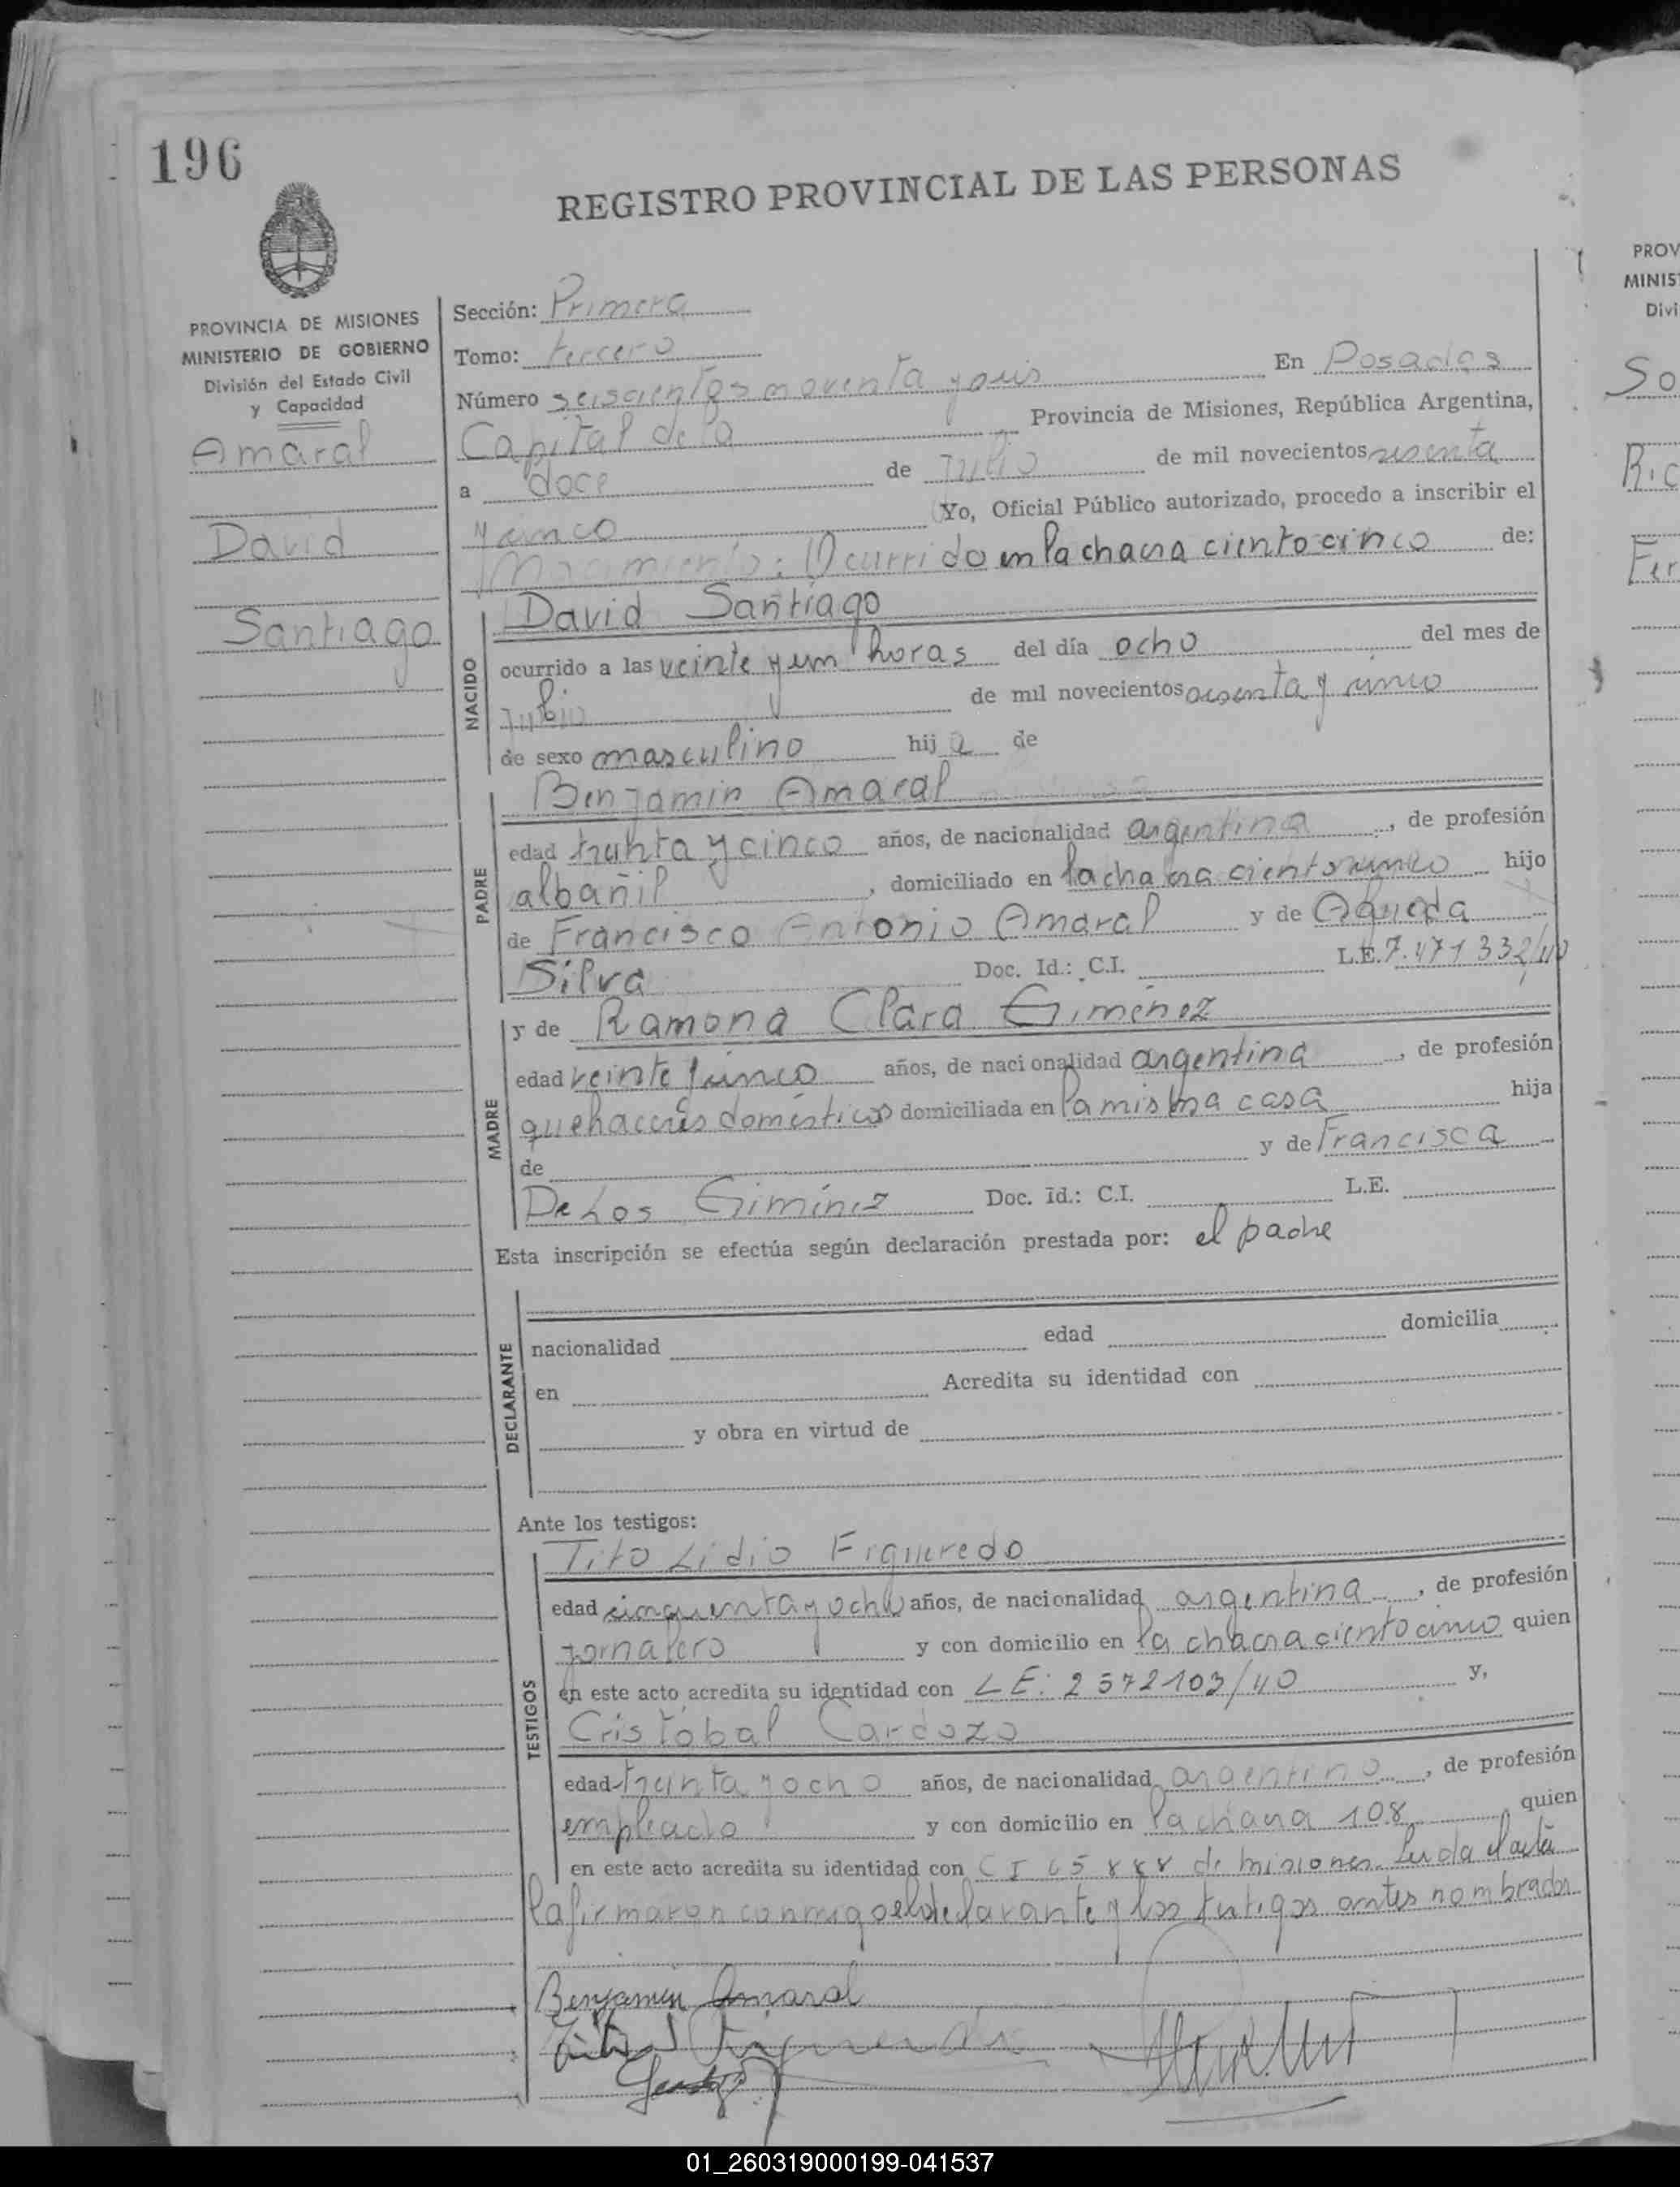 196
REGISTRO PROVINCIAL DE LAS PERSONAS
PROVINCIA DE MISIONES
MINISTERIO DE GOBIERNO
División del Estado Civil
y Capacidad
Amaral
David
Santiago
Sección: Primera
Tomo: tercero
Número seiscientos noventa y seis En Posadas
Capital de la Provincia de Misiones, República Argentina,
a doce de Julio de mil novecientos sesenta
y cinco Yo, Oficial Público autorizado, procedo a inscribir el
Nacimiento: Ocurrido en la chacra ciento cinco de:
NACIDO
David Santiago
ocurrido a las veinte y un horas del día ocho del mes de
Julio de mil novecientos sesenta y cinco
de sexo masculino hij o de
PADRE
Benjamin Amaral
edad treinta y cinco años, de nacionalidad argentina, de profesión
albañil, domiciliado en la chacra ciento cinco hijo
de Francisco Antonio Amaral y de Agueda
Silva Doc. Id.: C.I. L.E. 7.471332/40
MADRE
y de Ramona Clara Gimenez
edad veinte y cinco años, de nacionalidad argentina, de profesión
quehaceres domésticos domiciliada en la misma casa hija
de y de Francisca
De Los Giménez Doc. Id.: C.I. L.E.
Esta inscripción se efectúa según declaración prestada por: el padre
DECLARANTE
nacionalidad edad domicilia
en Acredita su identidad con
y obra en virtud de
Ante los testigos:
TESTIGOS
Tito Lidio Figueredo
edad cincuenta y ocho años, de nacionalidad argentina, de profesión
jornalero y con domicilio en la chacra ciento cinco quien
en este acto acredita su identidad con LE: 2572103/40 y,
Cristóbal Cardozo
edad treinta y ocho años, de nacionalidad argentino, de profesión
empleado y con domicilio en la chacra 108 quien
en este acto acredita su identidad con CI 65888 de misiones. Leida el acta
la firmaron conmigo el declarante y los testigos antes nombrados
Benjamin Amaral
PROV
MINIS
Divi
So
Ric
Fer
01_260319000199-041537